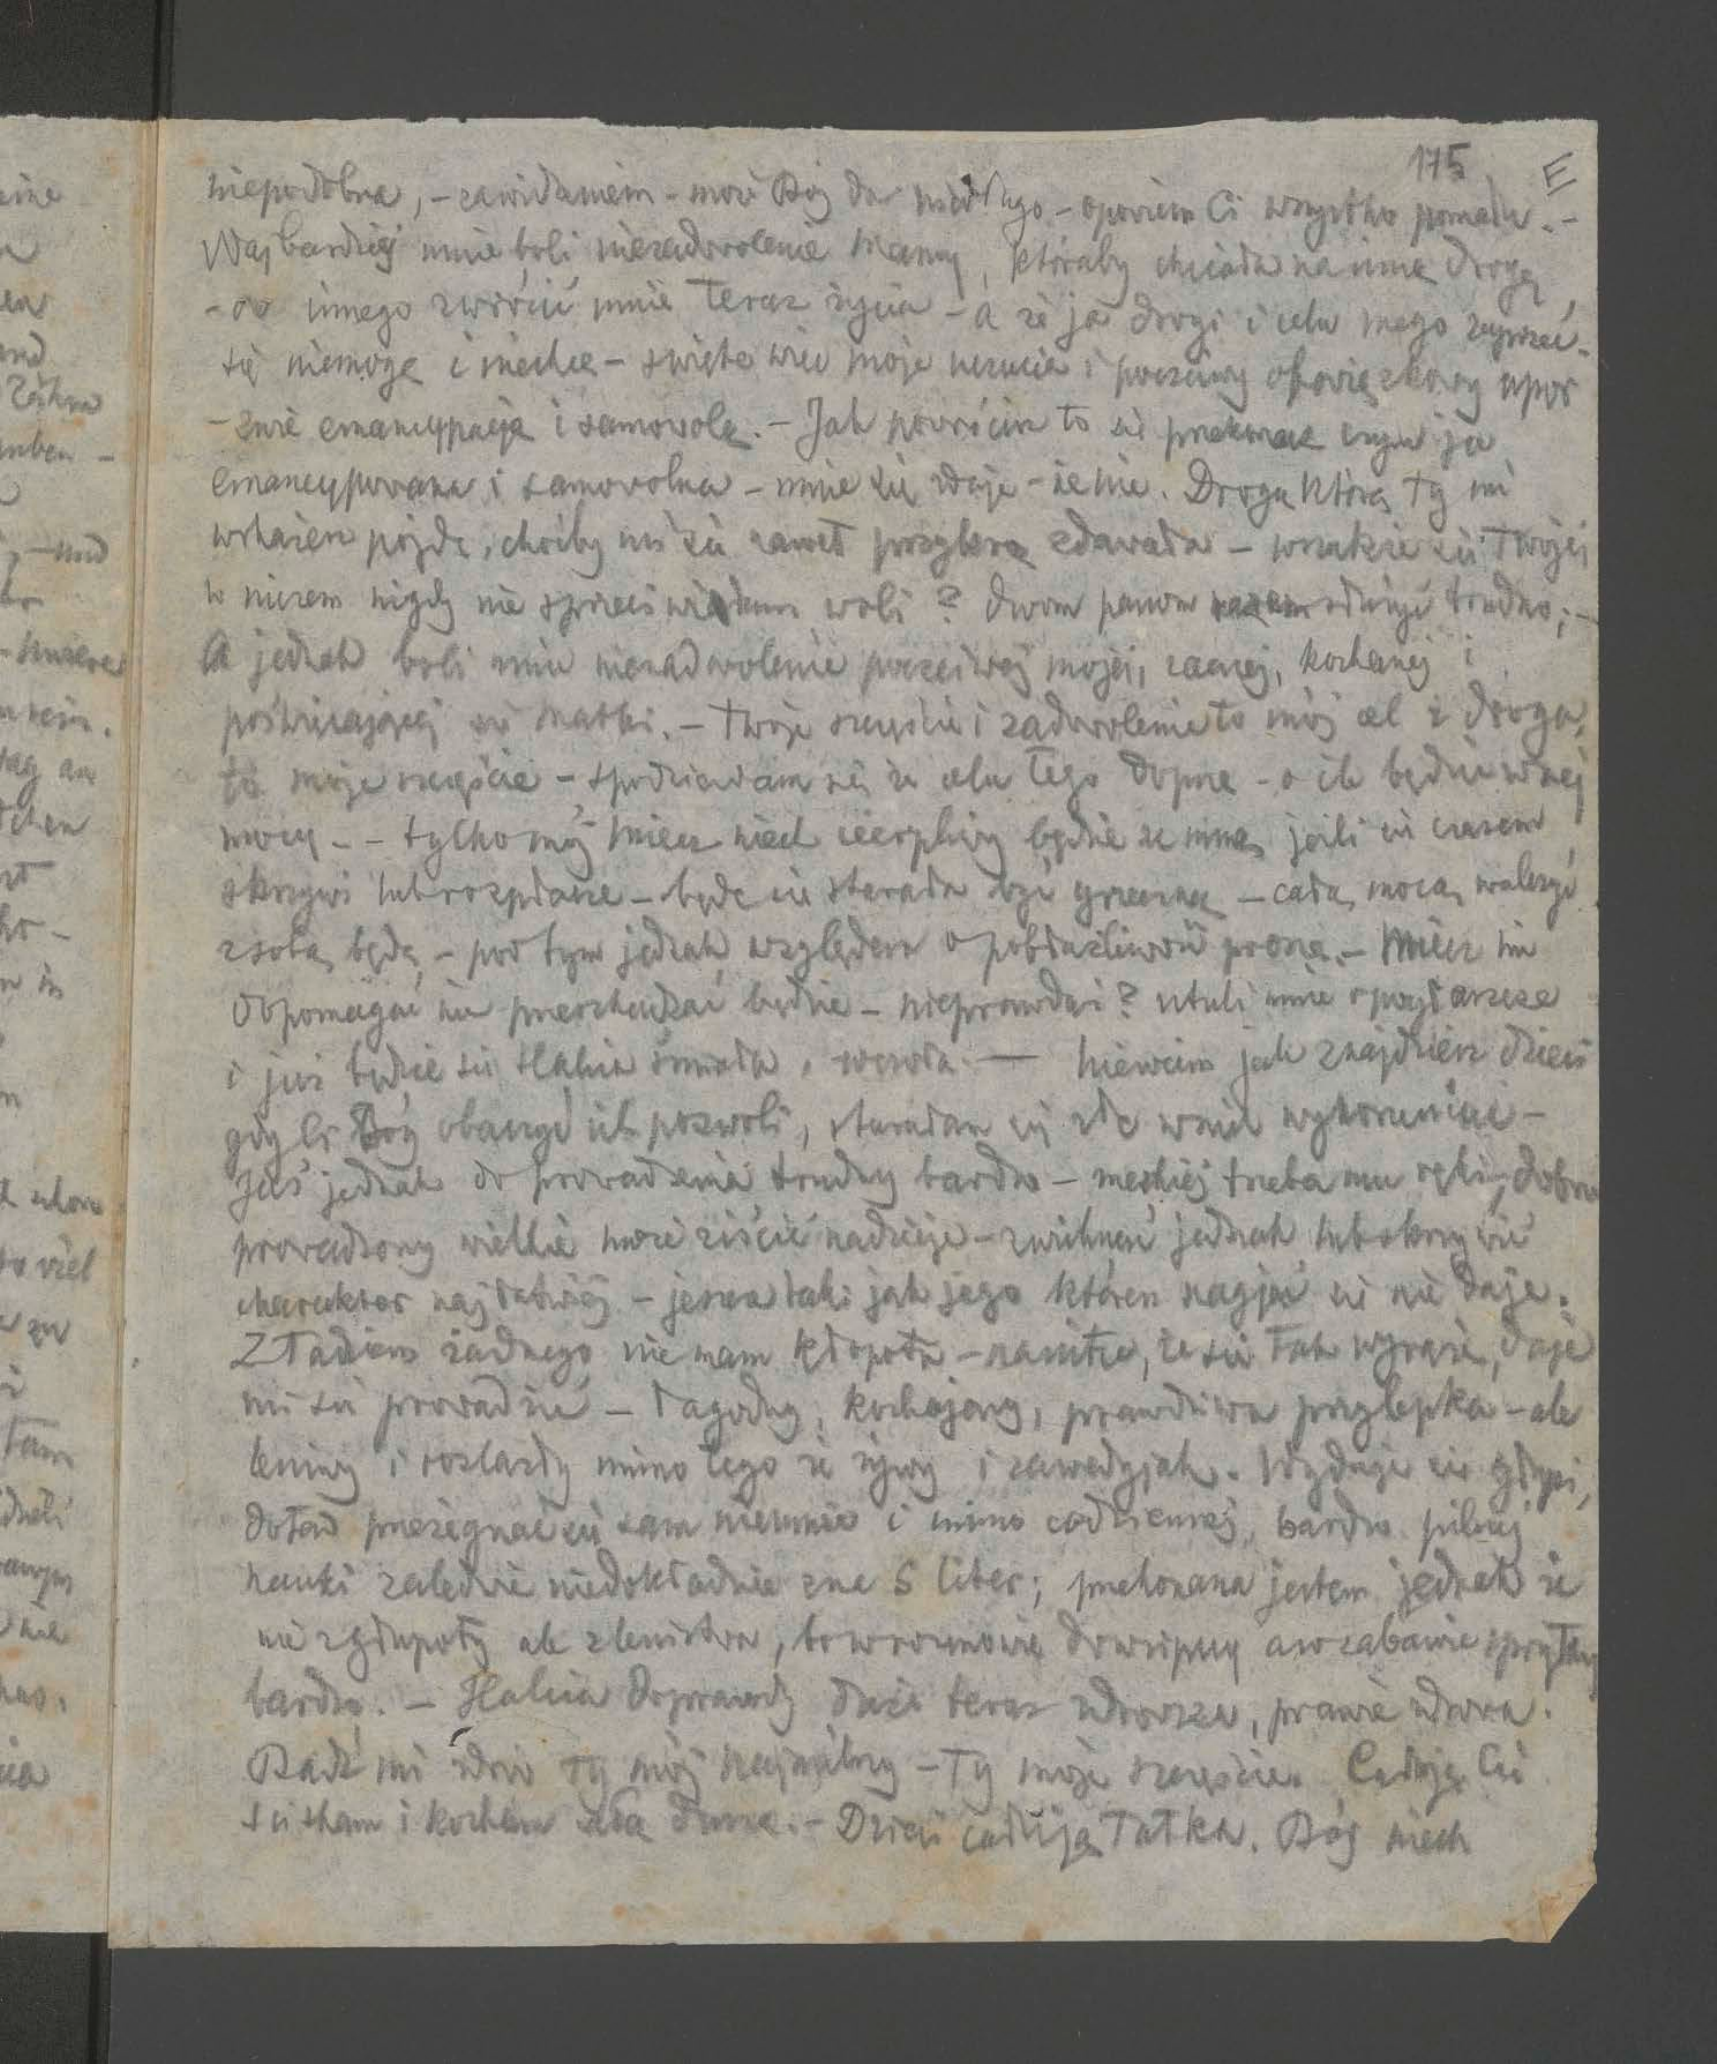 175 E
niepodobna, - zawidzeniem - może Bóg da niedługo - opowiem Ci wszystko pomału. -
Najbardziej mnie boli niezadowolenie Mamy, któraby chciała na inną drogę,
- do innego zwrócić mnie teraz życia - a że ja drogi i celu mego zaprzeć
się niemogę i niechcę - święte więc moje uczucia i poczciwy obowiązkowy upór
- zwie emancypacją i samowolą. - Jak powrócisz to się przekonasz czym ja
emancypowana i samowolna - mnie się zdaje - że nie. Drogą którą Ty mi
wskażesz pójdę, choćby mi się nawet przykrą zdawała - wszakże się Twojej
w niczem nigdy nie sprzeciwiałam woli? dwom panom służyć trudno; -
A jednak boli mnie niezadowolenie poczciwej mojej, zacnej, kochanej i
poświęcającej się Matki. - Twoje szczęście i zadowolenie to mój cel i droga,
to moje szczęście - spodziewam się że celu tego dopnę - o ile będzie w mej
mocy - - tylko mój Miecz niech cierpliwy będzie ze mną, jeśli się czasem
skrzywi lub rozpłacze - będę się starała być grzeczną - całą mocą walczyć
z sobą będę, - pod tym jednak względem o pobłażliwość proszę. - Miecz mi
dopomagać nie przeszkadzać będzie - nieprawdaż? utuli mnie
i już będzie się Halka śmiała, wesoła. — Niewiem jak znajdziesz dzieci
gdy Ci Bóg obaczyć ich pozwoli, starałam się złe w nich wykorzeniać -
Jaś jednak do prowadzenia trudny bardzo - męskiej trzeba mu ręki, dobrze
prowadzony wielkie może ziścić nadzieje - zwichnąć jednak lub skrzywić
charakter najłatwiej - jeszcze taki jak jego któren nagiąć się nie daje.
Z Tadziem żadnego nie mam kłopotu - że się tak wyrażę, daje
mi się prowadzić - łagodny, kochający, prawdziwa przylepka - ale
leniwy i rozlazły mimo tego że żywy i zawadyjak. Wydaje się głupi,
dotąd przeżegnać się sam nieumie i mimo codziennej, bardzo pilnej
nauki zaledwie niedokładnie zna 5 liter; przekonana jestem jednak że
nie z głupoty ale z lenistwa, bo w rozmowie dowcipny a w zabawie sprytny
bardzo. - Halka doprawdy dużo teraz zdrowsza, prawie zdrowa.
Bądź mi zdrów Ty mój najmilszy - Ty moje szczęście. Całuję Cię
ściskam i kocham całą duszą. - Dzieci całują Tatka. Bóg niech